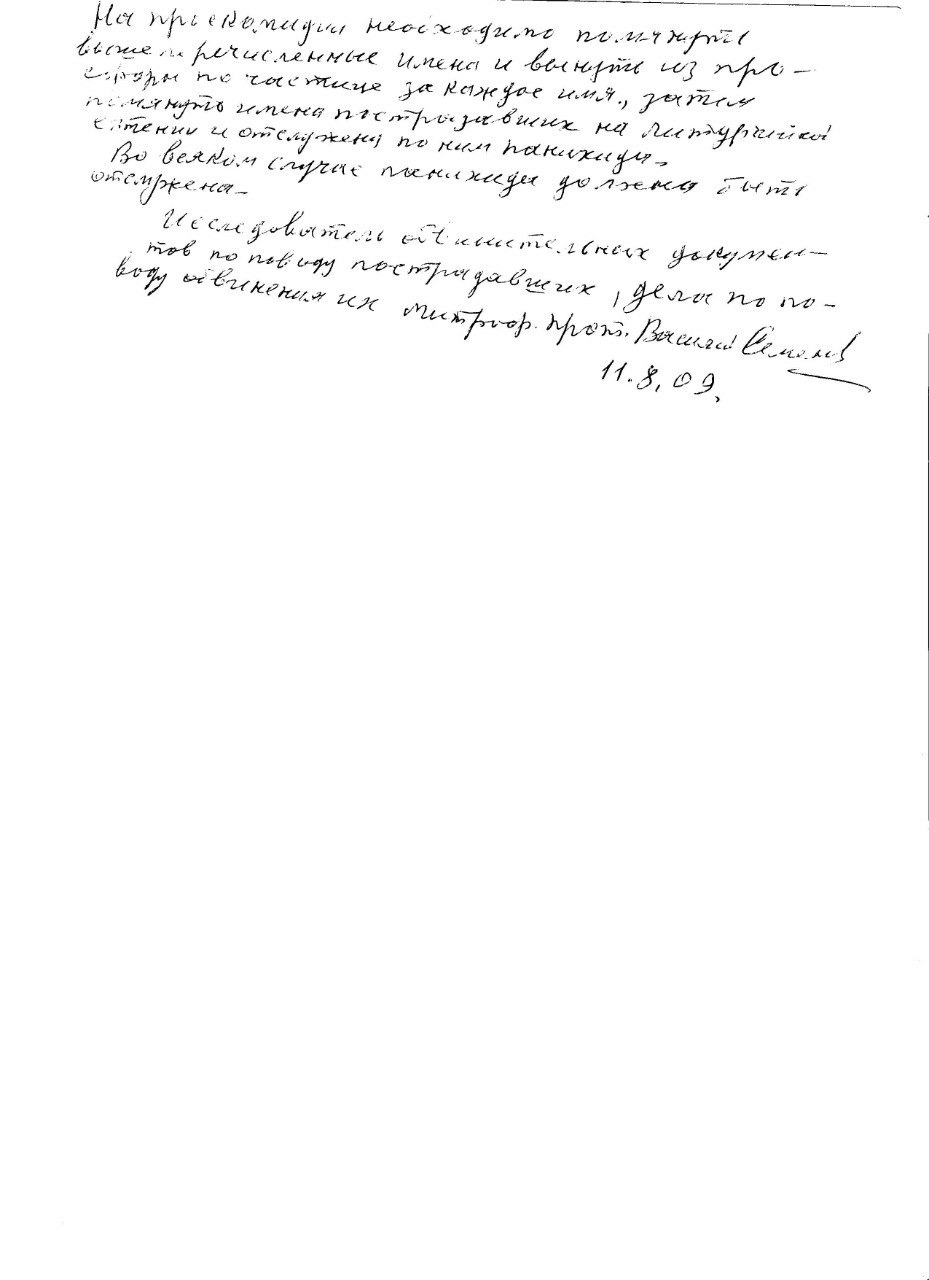 На проскомидии необходимо помянуть
вышеперечисленные имена и вынуть из про-
сфоры по частице за каждое имя, затем
помянуть имена пострадавших на литургийной
ектении и отслужена по ним панихида.
Во всяком случае панихида должна быть
отслужена.
Исследователь обвинительных докумен-
тов по поводу пострадавших, дела по по-
воду обвинения их митроф. прот. Василий
11.8.09.